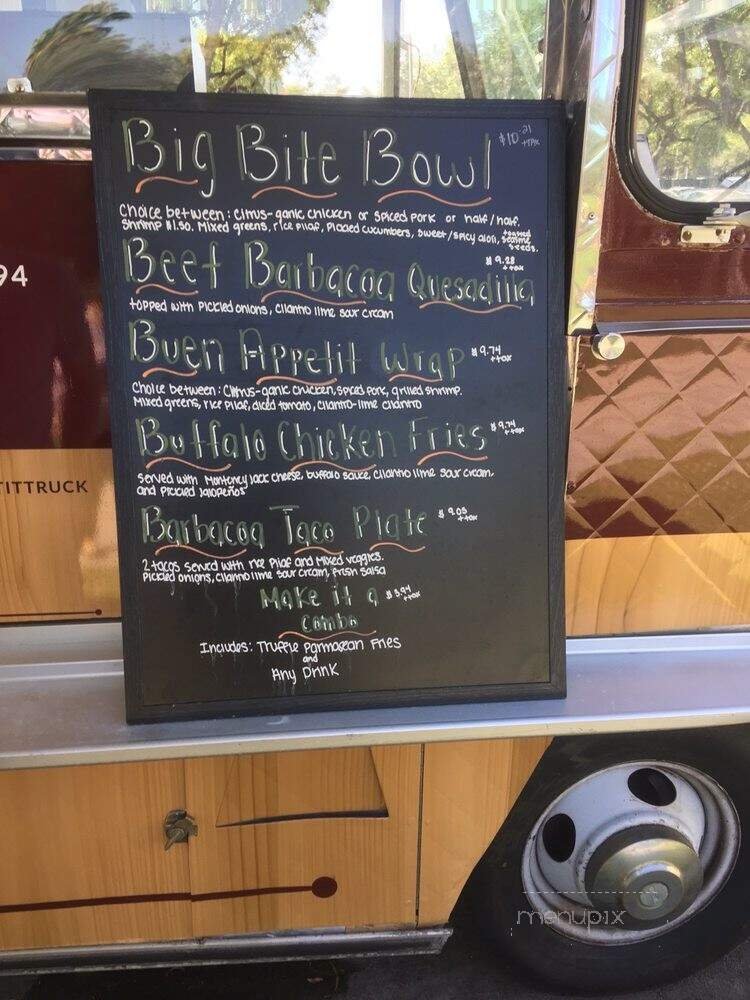 Big Bite Bowl $10.21 +TAX
Choice between: Citrus-garlic chicken or spiced pork or half/half.
Shrimp $1.50. Mixed greens, rice pilaf, Pickled cucumbers, sweet/spicy aioli, toasted sesame seeds.
Beef Barbacoa Quesadilla $9.28 +tax
topped with Pickled onions, cilantro lime sour cream
Buen Appetit Wrap $9.74 +tax
Choice between: Citrus-garlic chicken, spiced pork, grilled shrimp.
Mixed greens, rice pilaf, diced tomato, cilantro-lime cilantro
Buffalo Chicken Fries $9.74 +tax
served with Monterey Jack cheese, buffalo sauce, cilantro lime sour cream,
and Pickled Jalapeños
Barbacoa Taco Plate $9.05 +tax
2 tacos served with rice pilaf and Mixed veggies.
Pickled onions, cilantro lime sour cream, fresh salsa
Make it a $3.94 +tax
combo
Includes: Truffle Parmasean Fries
and
Any Drink
94
TITTRUCK
menupix